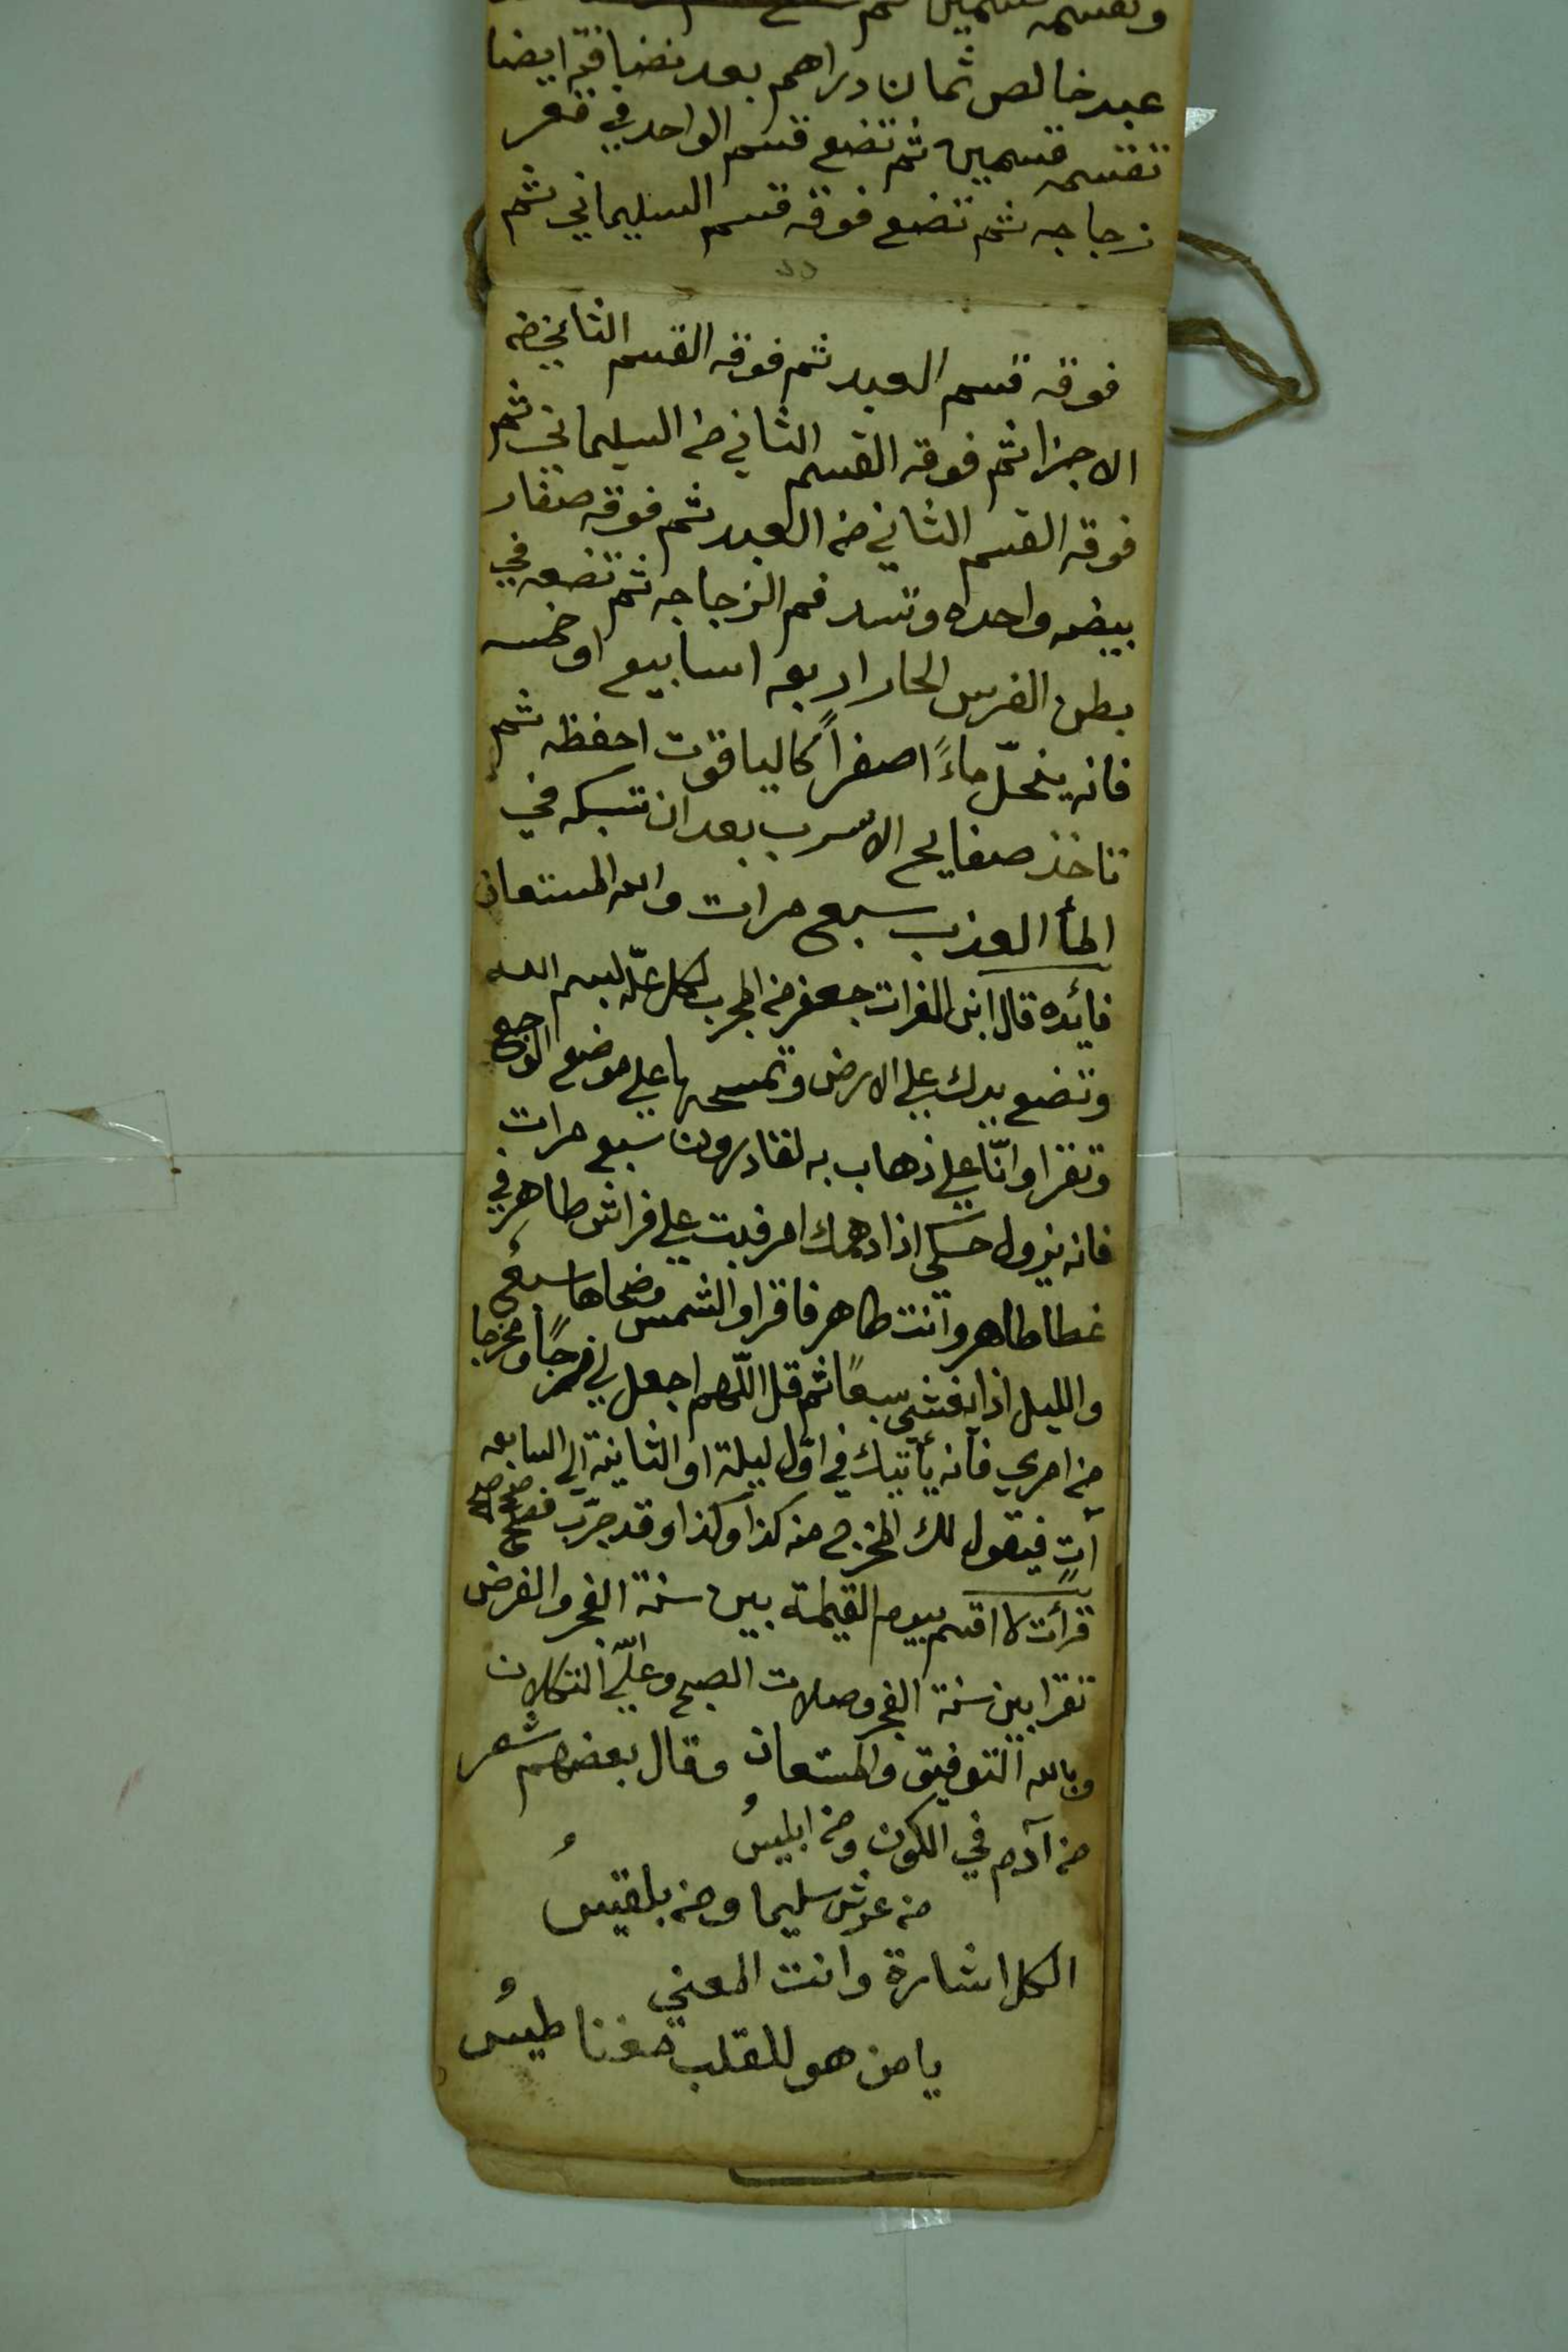 وتقسمه قسمين ثم
عبد خالص ثمان دراهم بعد نضافته ايضا
تقسمه قسمين ثم تضع قسم الواحد في قعر
زجاجه ثم تضع فوقه قسم السليماني ثم
فوقه قسم العبد ثم فوقه القسم الثاني من
الاجزا ثم فوقه القسم الثاني من السليماني ثم
فوقه القسم الثاني من العبد ثم فوقه صفار
بيضه واحده وتسد فم الزجاجه ثم تضعه في
بطن الفرس الحار اربعه اسابيع او خمسه
فانه ينحلّ ماءً اصفراً كالياقوت احفظه ثم
تاخذ صفايح الاسرب بعد ان تسبكه في
الماء العذب سبع مرات والله المستعان
فائده قال ابن الفرات جعفر من المجرب لكل علّه بسم الله
وتضع يدك علي الارض وتمسحها علي موضع الوجع
وتقرا وانّا علي ذهاب به لقادرون سبع مرات
فانه يزول حسكي اذا دهمك امر فبت علي فراش طاهر في
غطا طاهر وانت طاهر فاقرا والشمس وضحاها سبع
والليل اذا يغشي سبعاً ثم قل اللّهم اجعل لي فرجاً ومخرجا
من امري فانه يأتيك في اوّل ليلة او الثانية الي السابعه
آتٍ فيقول لك المخرج منه كذا وكذا وقد جرّب فصح صح صح
قرأت لا اقسم بيوم القيمة بين سنة الفجر والفرض
تقرا بين سنة الفجر وصلات الصبح وعلي الله التكلان
وبالله التوفيق والمستعان وقال بعضهم شعر
من آدم في الكون ومن ابليسُ
من عرش سليما ومن بلقيسُ
الكل اشارة وانت المعني
يا من هو للقلب مغناطيسُ